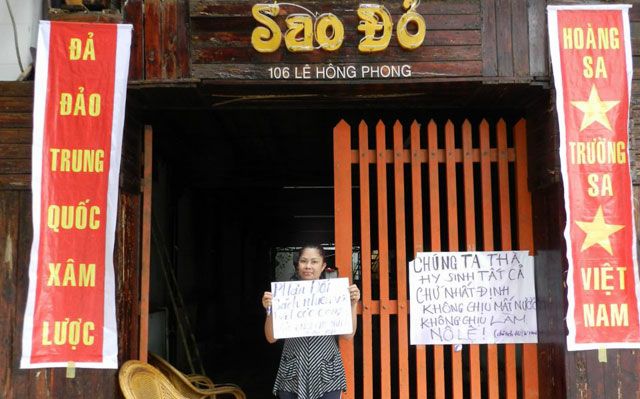 Sao Đỏ
106 LÊ HỒNG PHONG
ĐẢ
ĐẢO
TRUNG
QUỐC
XÂM
LƯỢC
HOÀNG
SA
TRƯỜNG
SA
VIỆT
NAM
CHÚNG TA THÀ
HY SINH TẤT CẢ
CHỨ NHẤT ĐỊNH
KHÔNG CHỊU MẤT NƯỚC
KHÔNG CHỊU LÀM
NÔ LỆ!
Phản đối